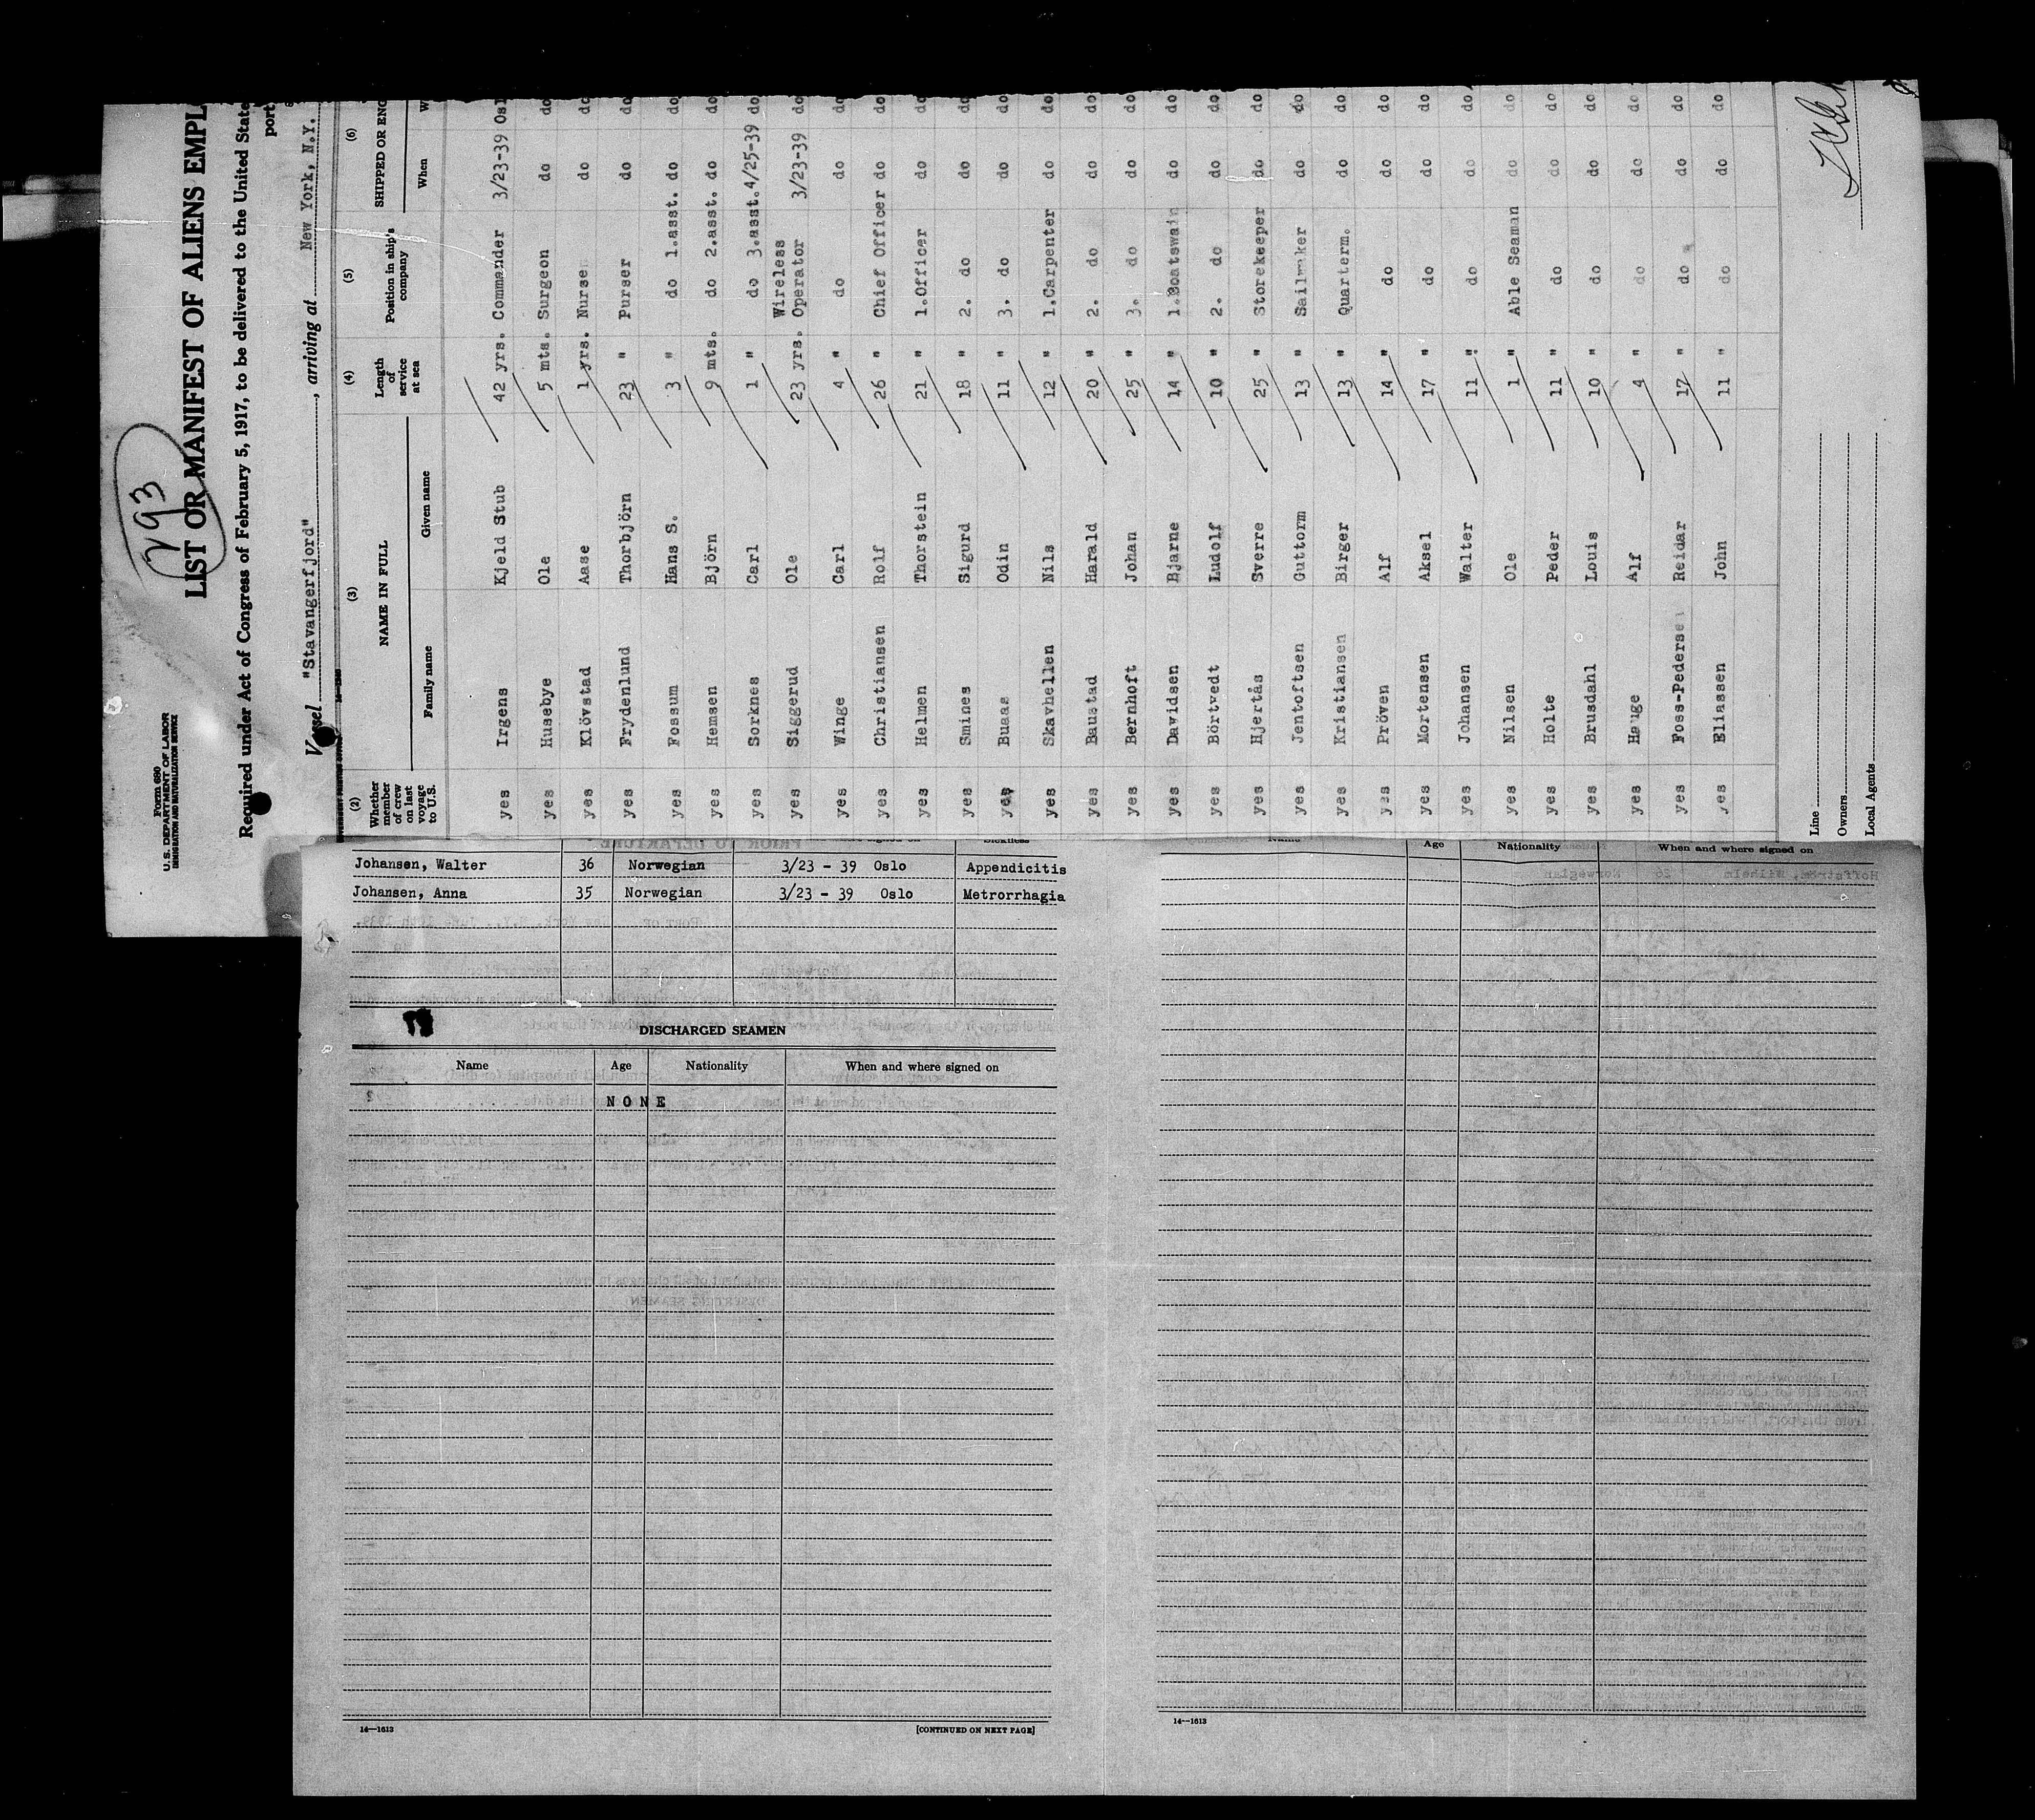 293
Form 680
U. S. DEPARTMENT OF LABOR
IMMIGRATION AND NATURALIZATION SERVICE
LIST OR MANIFEST OF ALIENS EMPL
Required under Act of Congress of February 5, 1917, to be delivered to the United State
port
Vessel "Stavangerfjord", arriving at New York, N.Y.
(2) (3) (4) (5) (6)
Whether member of crew on last voyage to U.S. NAME IN FULL Length of service at sea Position in ship's company SHIPPED OR ENG
Family name Given name When W
yes Irgens Kjeld Stub 42 yrs. Commander 3/23-39 Osl
yes Husebye Ole 5 mts. Surgeon do do
yes Klövstad Aase 1 yrs. Nurse do do
yes Frydenlund Thorbjörn 23 " Purser do do
yes Fossum Hans S. 3 " do 1.asst. do do
yes Hemsen Björn 9 mts. do 2.asst. do do
yes Sorknes Carl 1 " do 3.asst. 4/25-39 do
yes Siggerud Ole 23 yrs. Wireless Operator 3/23-39 do
yes Winge Carl 4 " do do do
yes Christiansen Rolf 26 " Chief Officer do do
yes Helmen Thorstein 21 " 1.Officer do do
yes Smines Sigurd 18 " 2. do do do
yes Buaas Odin 11 " 3. do do do
yes Skavhellen Nils 12 " 1.Carpenter do do
yes Baustad Harald 20 " 2. do do do
yes Bernhoft Johan 25 " 3. do do do
yes Davidsen Bjarne 14 " 1.Boatswain do do
yes Börtvedt Ludolf 10 " 2. do do do
yes Hjertås Sverre 25 " Storekeeper do do
yes Jentoftsen Guttorm 13 " Sailmaker do do
yes Kristiansen Birger 13 " Quarterm. do do
yes Pröven Alf 14 " do do do
yes Mortensen Aksel 17 " do do do
yes Johansen Walter 11 " do do do
yes Nilsen Ole 1 " Able Seaman do do
yes Holte Peder 11 " do do do
yes Brusdahl Louis 10 " do do do
yes Hauge Alf 4 " do do do
yes Foss-Pederse Reidar 17 " do do do
yes Eliassen John 11 " do do do
Line
Owners
Local Agents
Johansen, Walter 36 Norwegian 3/23 - 39 Oslo Appendicitis
Johansen, Anna 35 Norwegian 3/23 - 39 Oslo Metrorrhagia
DISCHARGED SEAMEN
Name Age Nationality When and where signed on
NONE
14—1613 [CONTINUED ON NEXT PAGE]
Name Age Nationality When and where signed on
14—1613